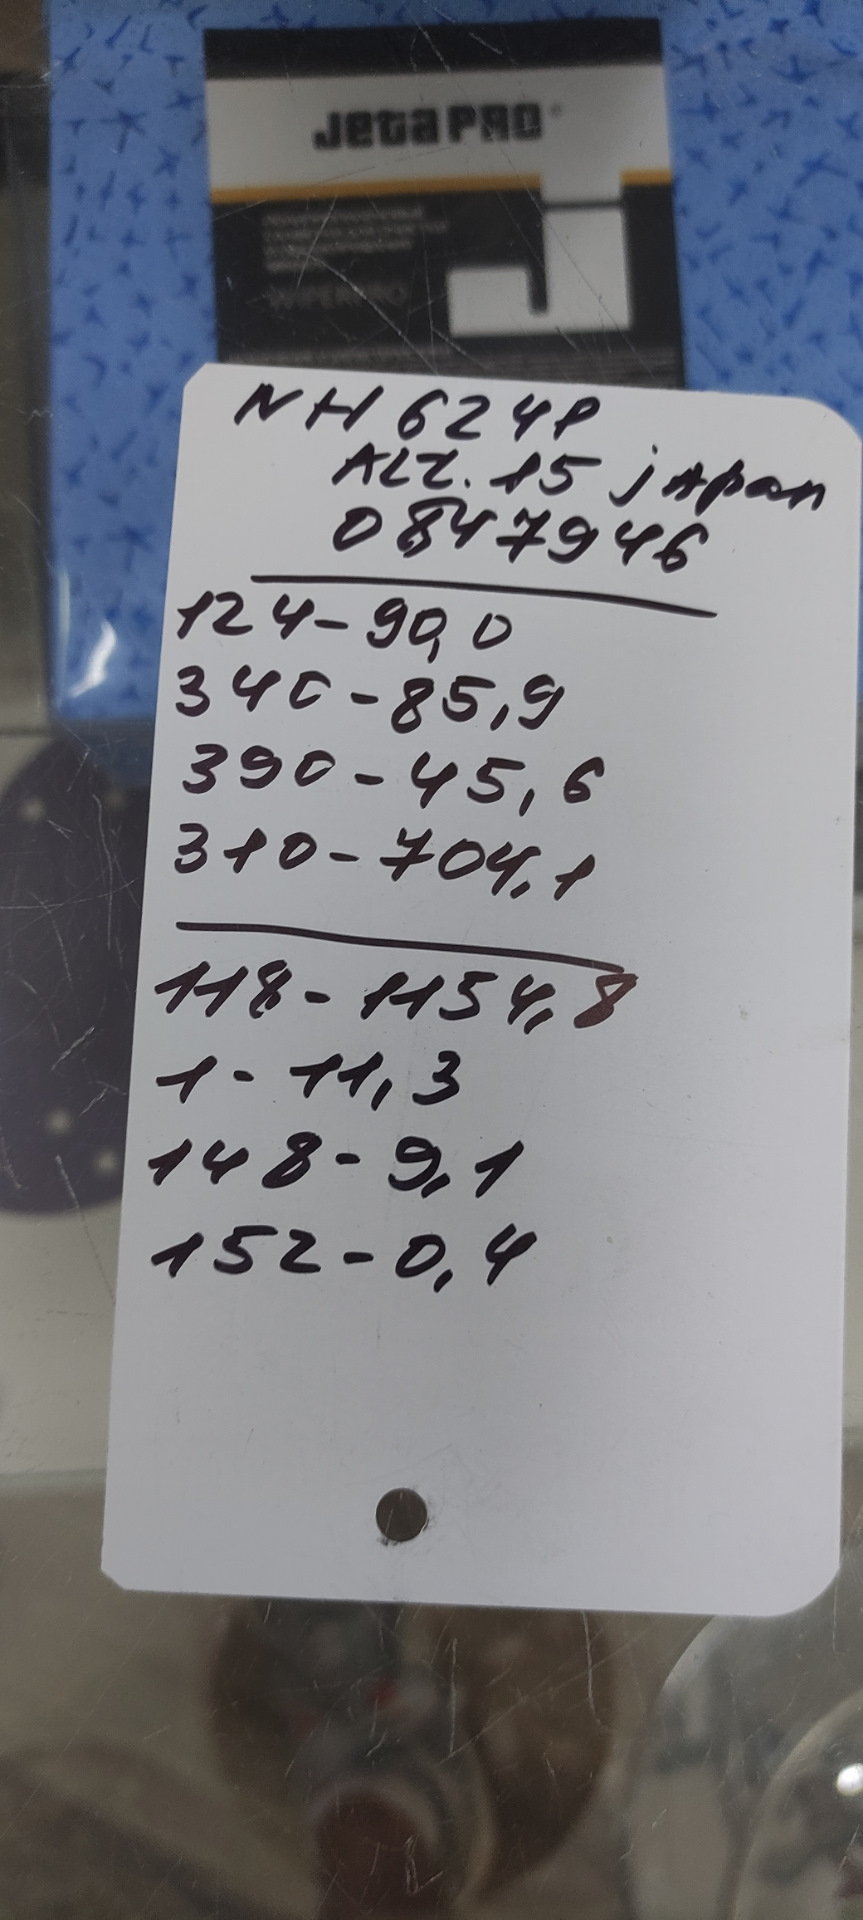 Jeta PRO
WIPER PRO
NH 624P
ALT. 15 japan
0847946
124-90,0
340-85,9
390-45,6
310-704,1
118-1154,8
1-11,3
148-9,1
152-0,4